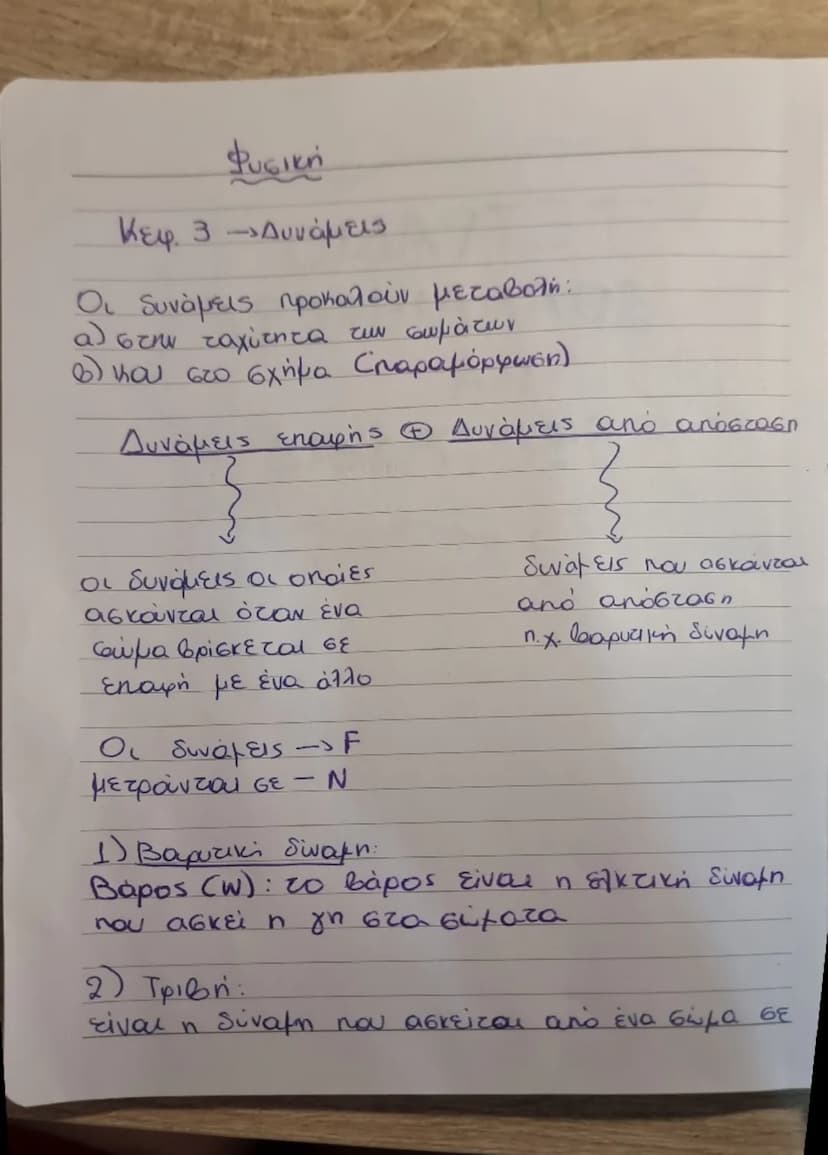 Φυσική
Κεφ. 3 → Δυνάμεις
Οι δυνάμεις προκαλούν μεταβολή:
α) στην ταχύτητα των σωμάτων
β) και στο σχήμα (παραμόρφωση)
Δυνάμεις επαφής ⊕ Δυνάμεις από απόσταση
οι δυνάμεις οι οποίες
ασκώνται όταν ένα
σώμα βρίσκεται σε
επαφή με ένα άλλο
δυνάμεις που ασκώνται
από απόσταση
π.χ. βαρυτική δύναμη
Οι δυνάμεις → F
μετρώνται σε – N
1) Βαρυτική δύναμη:
Βάρος (w): το βάρος είναι η ελκτική δύναμη
που ασκεί η γη στα σώματα
2) Τριβή:
είναι η δύναμη που ασκείται από ένα σώμα σε